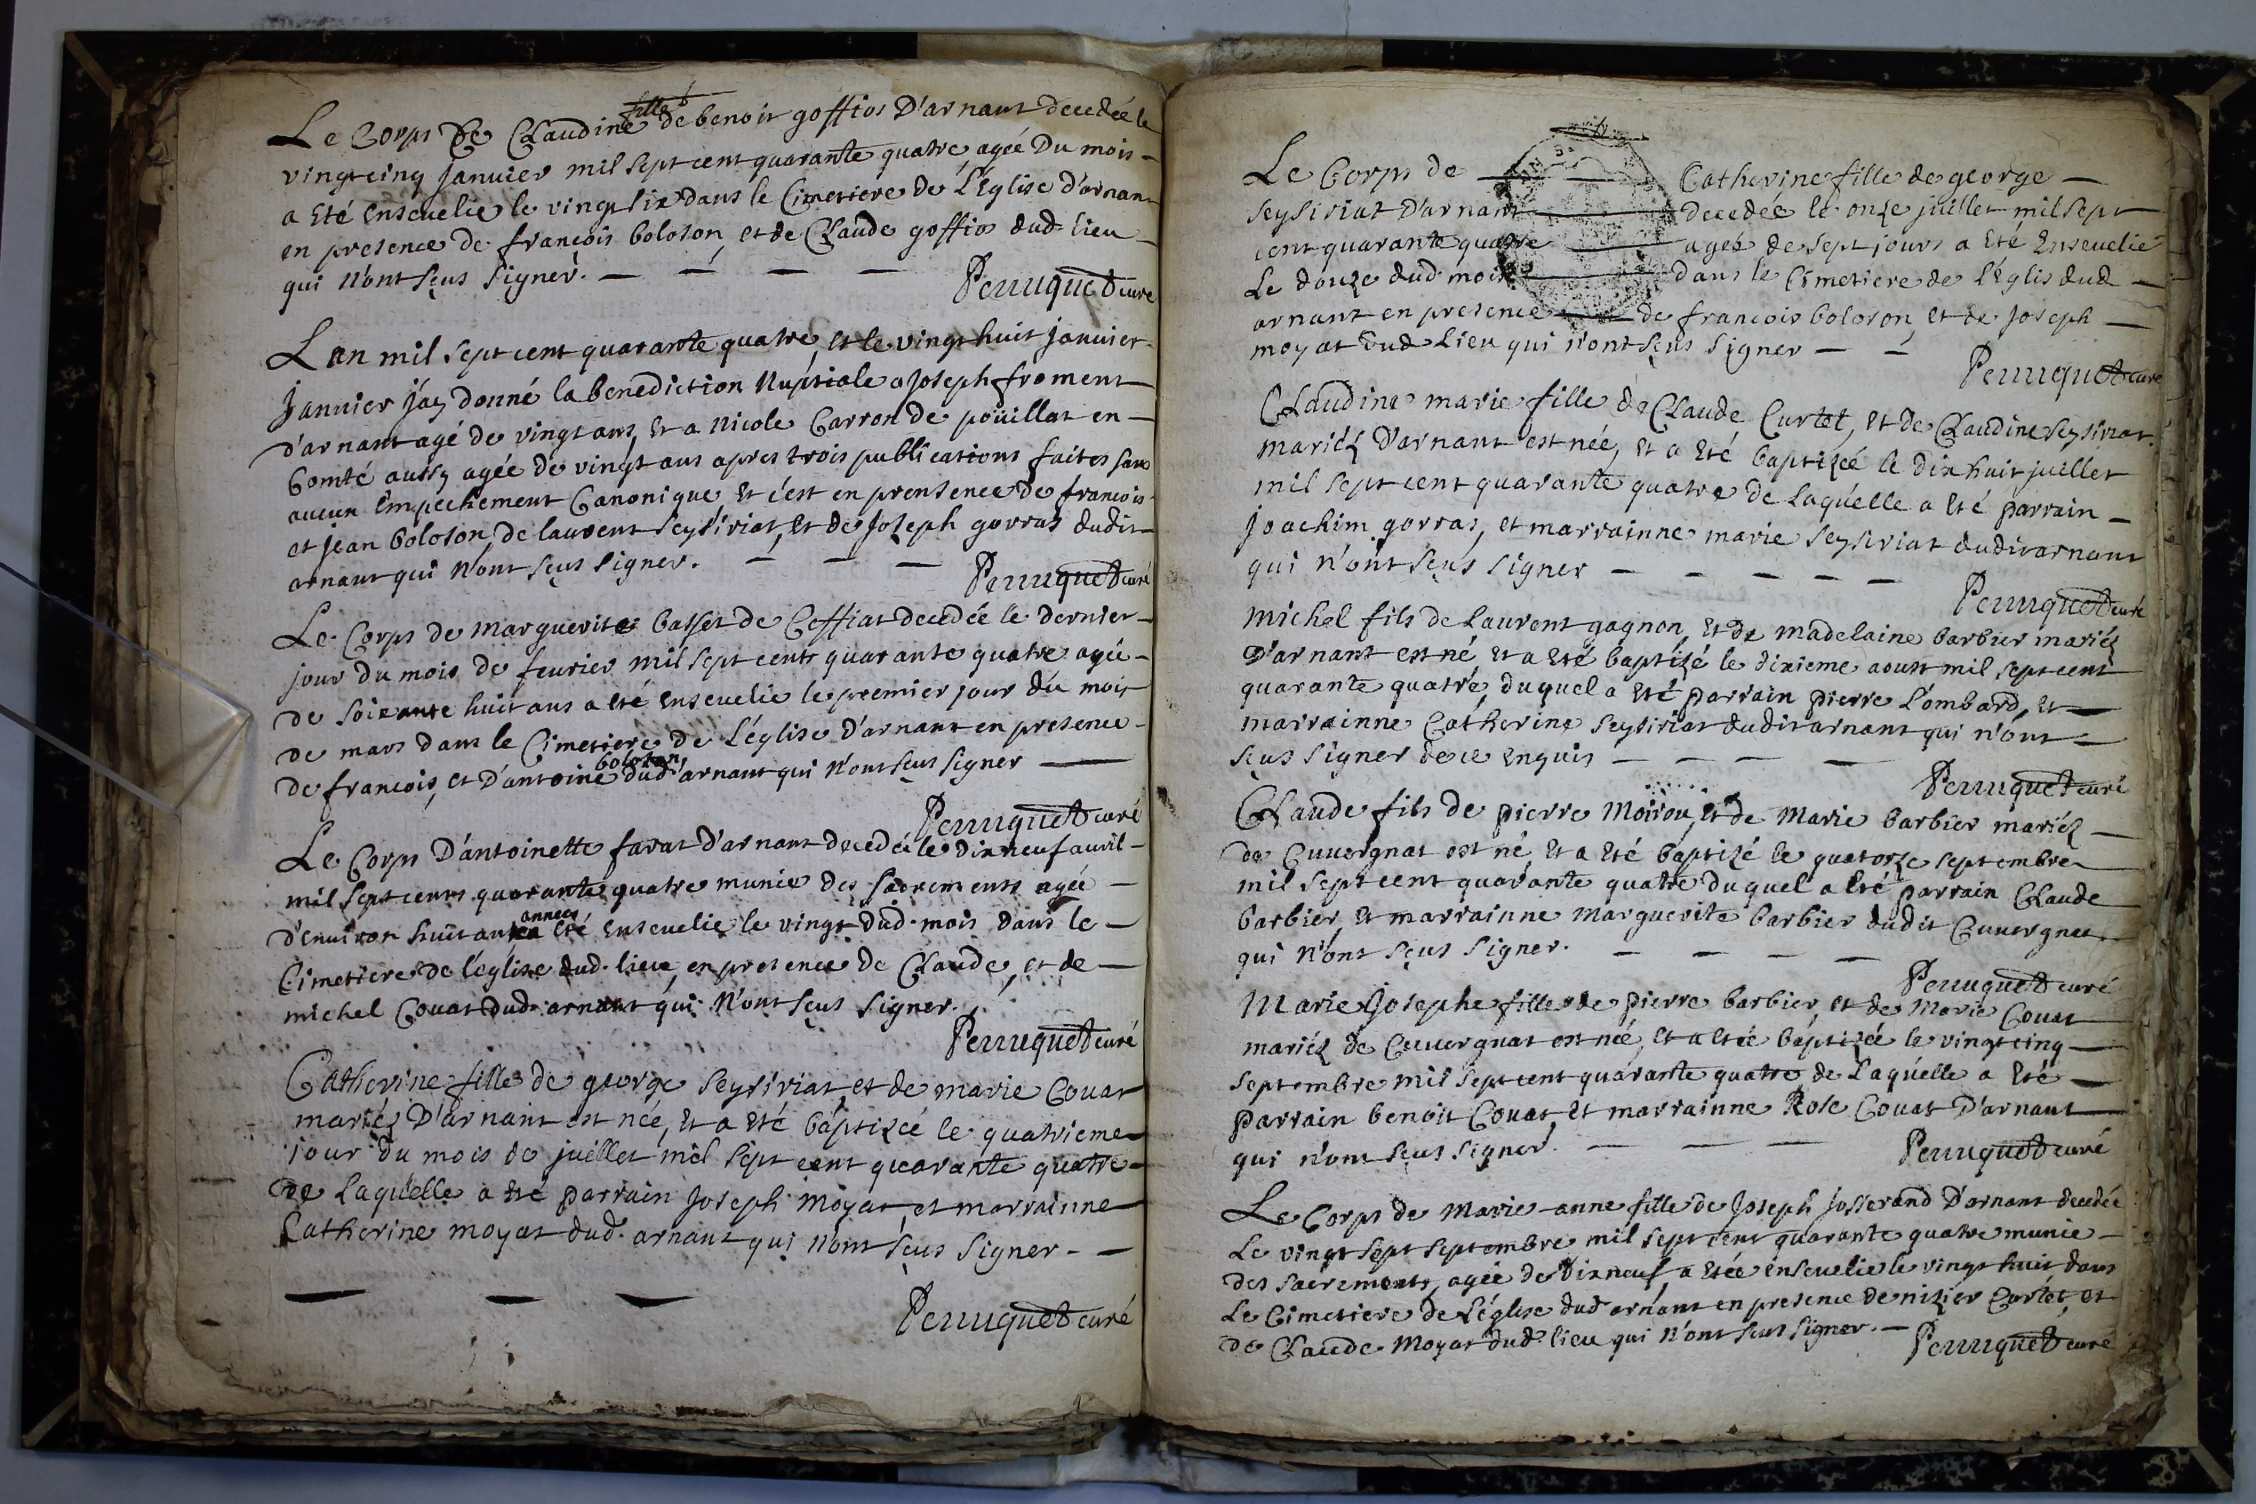 Le Corps De Claudine fille de benoit goffios D'arnant decedée le
vingt cinq janvier mil sept cent quarante quatre, agée Du mois
a eté ensevelie le vingt six dans le Cimetiere de L'Eglise d'arnant
en presence de françois boloson, et de Claude goffios dud. lieu
qui n'ont sçus signer.
Perruquet curé
Lan mil sept cent quarante quatre, et le vingt huit janvier
janvier j'ay donné la benediction Nuptiale a joseph froment
d'arnant agé de vingt ans, et a nicole Carron de poüillat en
Comté aussy agée de vingt ans apres trois publications faites sans
aucun empechement Canonique et c'est en prensence de francois
et jean boloson, de laurent seysiriat, et de joseph gorras dudit
arnant qui n'ont sçus signer.
Perruquet curé
Le Corps de marguerite basset de Ceffiat decedée le dernier
jour du mois de fevrier mil sept cents quarante quatre agée
de soixante huit ans a eté ensevelie le premier jour du mois
de mars dans le Cimetiere de L'église d'arnant en presence
de francois, et D'antoine boloson dud. arnant qui n'ont sçus signer
Perruquet curé
Le Corps D'antoinette farat d'arnant decedée le dix neuf avril
mil sept cents quarante quatre munie des sacrements agée
d'environ huit ans annees a eté ensevelie le vingt dud. mois dans le
Cimetiere de l'eglise dud. lieu, en presence de Claude, et de
michel Couat dud. arnant qui n'ont sçus signer.
Perruquet curé
Catherine fille de george seysiriat, et de marie Couat
mariéz D'arnant est née, et a eté baptizée le quatrieme
jour du mois de juillet mil sept cent quarante quatre
de Laquelle a eté parrain joseph moyat, et marrainne
Catherine moyat dud. arnant qui n'ont sçus signer.
Perruquet curé
Le Corps de Catherine fille de george
seysiriat D'arnant decedée le onze juillet mil sept
cent quarante quatre agée de sept jours a eté ensevelie
Le douze dud. mois dans le Cimetiere de l'églis dud
arnant en presence de francois boloson, et de joseph
moyat dud Lieu qui n'ont sçus signer
Perruquet curé
Claudine marie fille de Claude Curtet, et de Claudine seysiriat
mariéz D'arnant est née, et a eté baptizée le dix huit juillet
mil sept cent quarante quatre de Laquelle a eté parrain
joachim gorras, et marrainne marie seysiriat dudit arnant
qui n'ont sçus signer
Perruquet curé
Michel fils de Laurent gagnon, et de madelaine barbier mariéz
D'arnant est né et a eté baptizé le dixieme aoust mil sept cent
quarante quatre, duquel a eté parrain pierre Lombard, et
marrainne Catherine seysiriat dudit arnant qui n'ont
sçus signer de ce enquis
Perruquet curé
Claude fils de pierre Moirou, et de Marie barbier mariéz
de Cuvergnat est né, et a eté baptizé le quatorze septembre
mil sept cent quarante quatre duquel a eté parrain Claude
barbier, et marrainne Marguerite barbier dudit Cuvergnat
qui n'ont sçus signer.
Perruquet curé
Marie josephe fille de pierre barbier, et de Marie Couat
mariéz de Cuvergnat est née, et a etée baptizée le vingt cinq
septembre mil sept cent quarante quatre, de Laquelle a eté
parrain benoit Couat, et marrainne Rose Couat D'arnant
qui n'ont sçus signer.
Perruquet curé
Le Corps de Marie-anne fille de joseph josserand D'arnant decedée
Le vingt sept septembre mil sept cent quarante quatre munie
des sacrements, agée de Dix neuf, a etée ensevelie le vingt huit dans
Le Cimetiere de L'église dud arnant en presence de nizier Curtet, et
de Claude Moyat dud. lieu qui n'ont sçus signer.
Perruquet curé